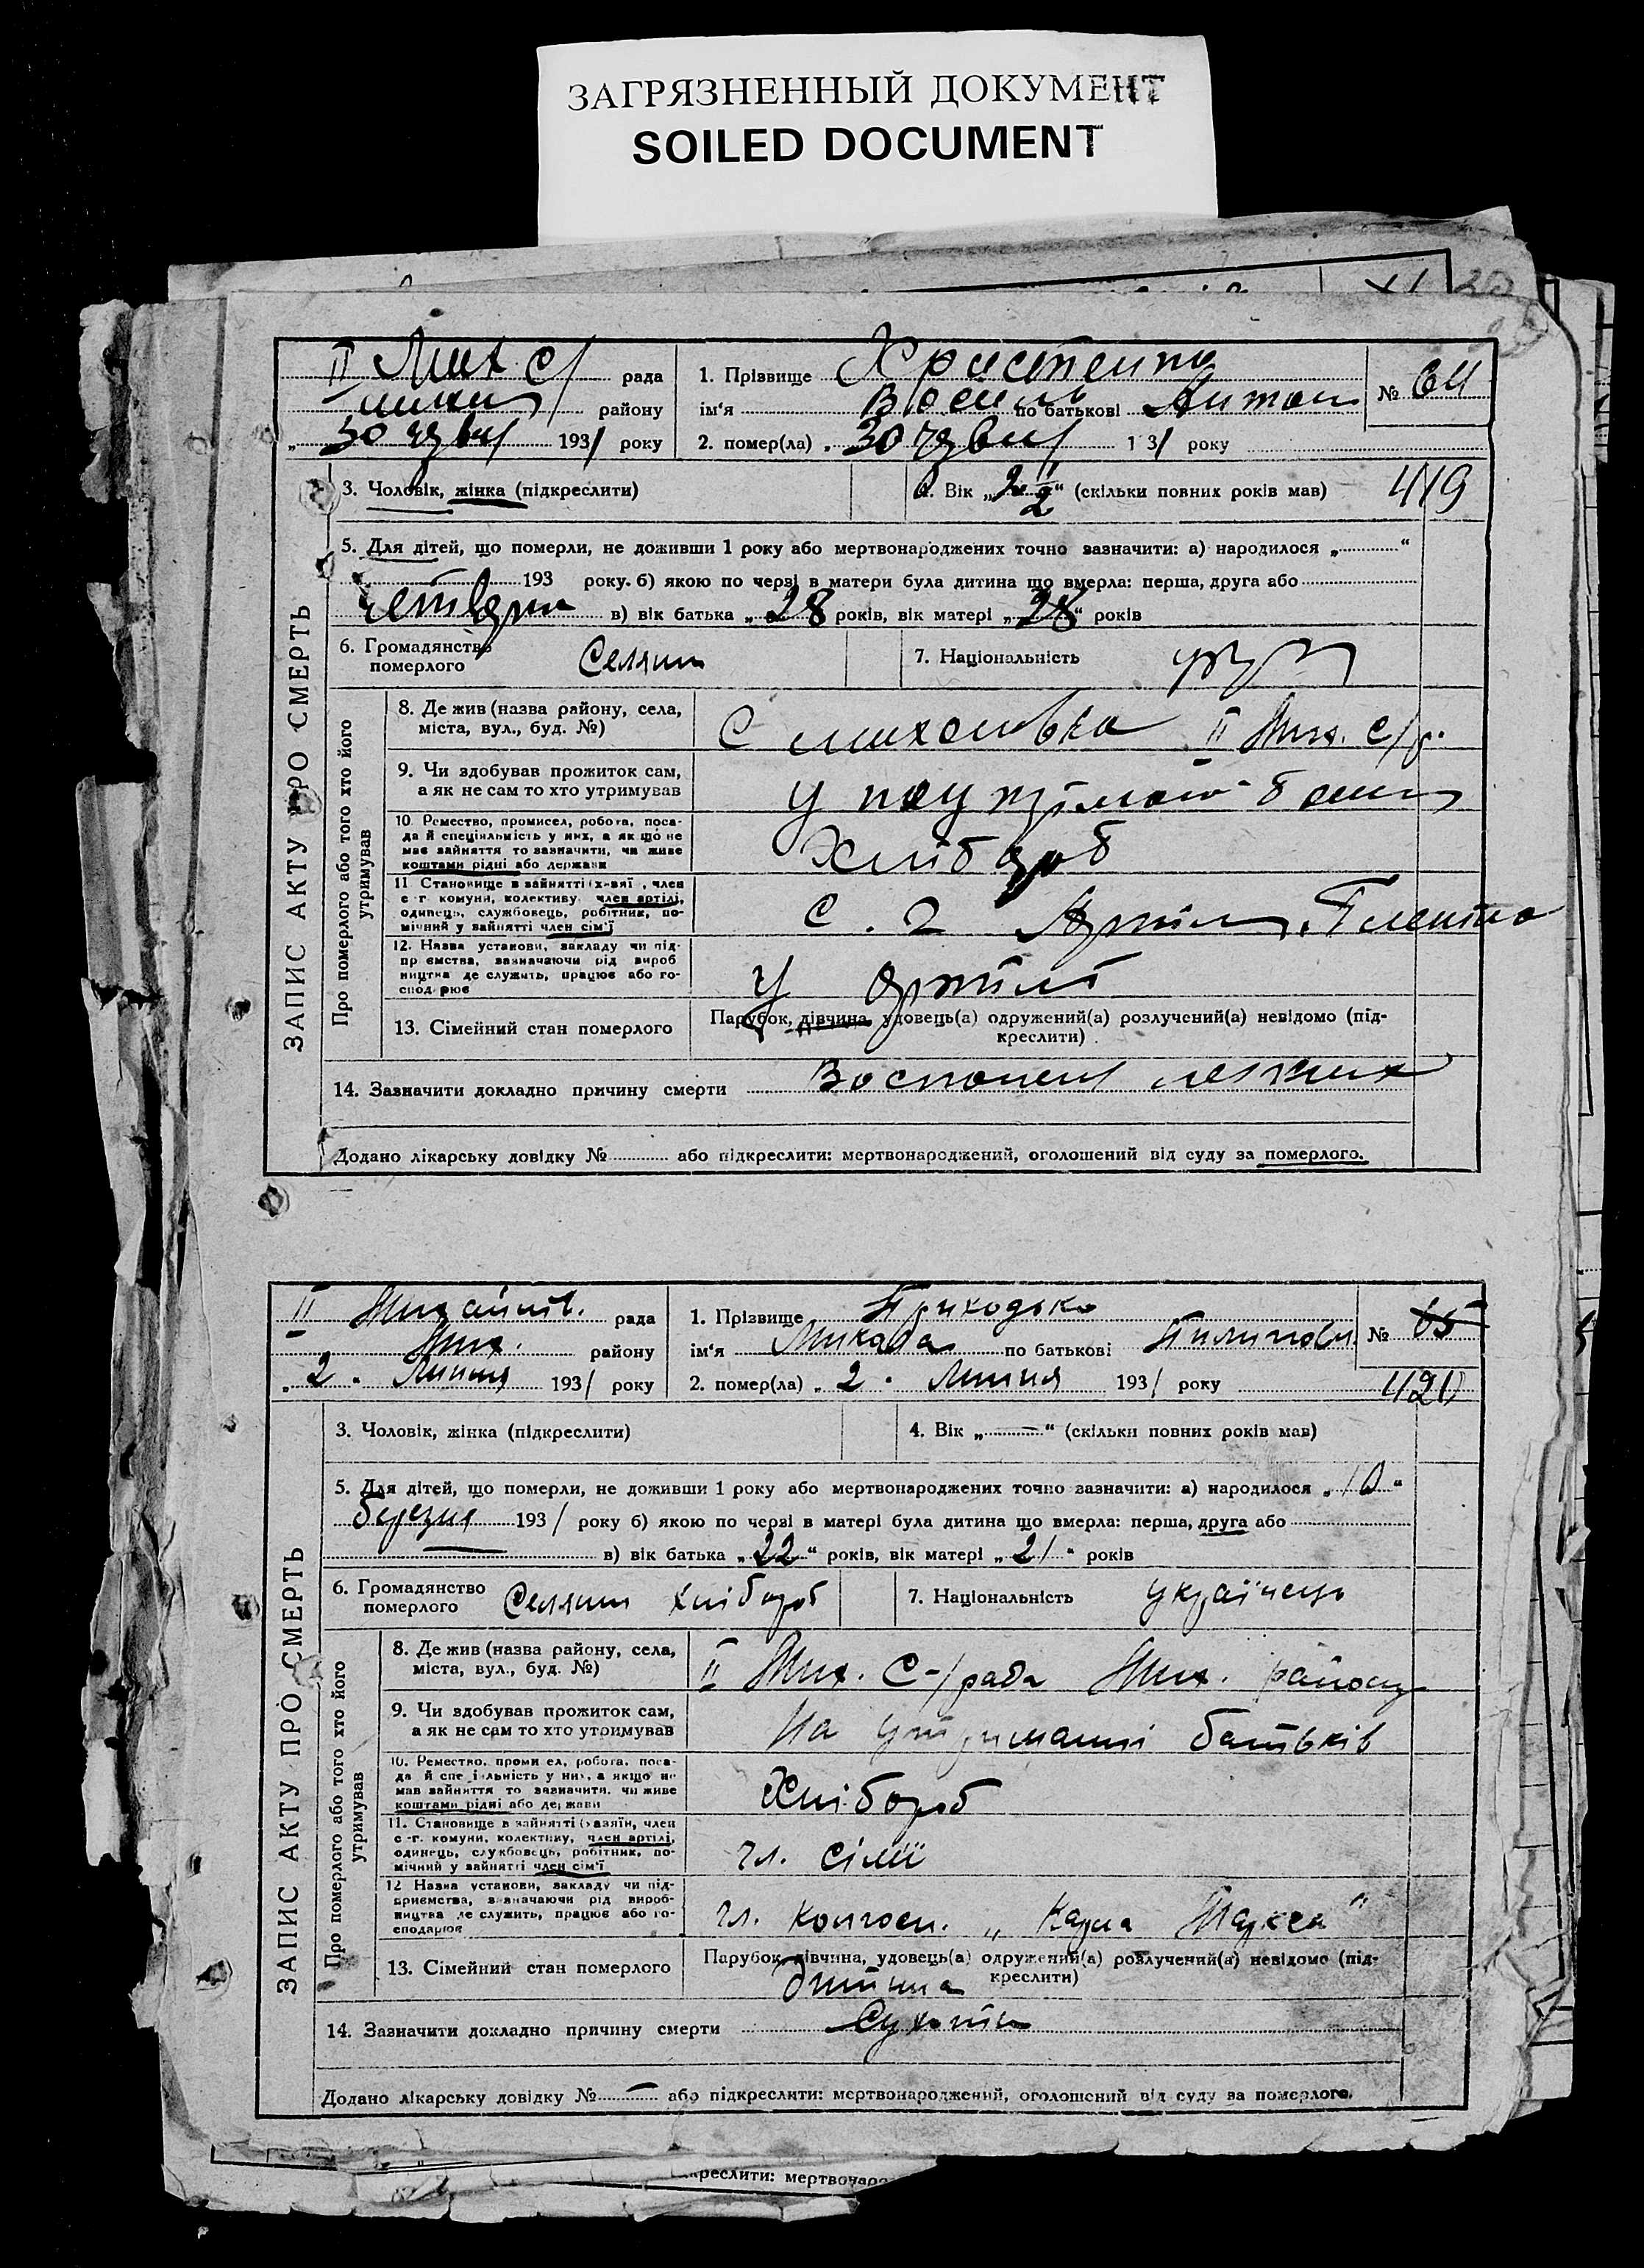 ЗАГРЯЗНЕННЫЙ ДОКУМЕНТ
SOILED DOCUMENT
ЗАПИС АКТУ ПРО СМЕРТЬ
II Мих с/ рада
району
30 червн 1931 року
1. Прізвище Христенко
ім'я Василь по батькові Антон
2. помер(ла) „ 30 червн 1 31 року
№ 64
419
3. Чоловік, жінка (підкреслити)
4. Вік „2 1/2“ (скільки повних років мав)
5. Для дітей, що померли, не доживши 1 року або мертвонароджених точно зазначити: а) народилося „ “
193 року. б) якою по черзі в матери була дитина що вмерла: перша, друга або
четверта в) вік батька „ 28 років, вік матері „ 28 “ років
6. Громадянство померлого Селянин
7. Національність укр
Про померлого або того хто його утримував
8. Де жив (назва району, села,
міста, вул., буд. №)
С Михайловка II Мих. с/р.
9. Чи здобував прожиток сам,
а як не сам то хто утримував
10. Ремество, промисел, робота, поса-
да й спеціяльність у них, а як що не
мав зайняття то зазначити, чи живе
коштами рідні або держави
Хлібороб
11 Становище в зайнятті (х-зяї , член
с г комуни, колективу член артілі,
одинець, службовець, робітник, по-
мічний у зайнятті член сім'ї
12. Назва установи, закладу чи під-
пр ємства, зазначаючи рід вироб
ництва де служить, працює або го-
спод рює
У артілі
13. Сімейний стан померлого
Парубок, дівчина, удовець(а) одружений(а) розлучений(а) невідомо (під-
креслити)
14. Зазначити докладно причину смерти Восполені легких
Додано лікарську довідку № або підкреслити: мертвонароджений, оголошений від суду за померлого.
ЗАПИС АКТУ ПРО СМЕРТЬ
II Михайлів. рада
Мих. району
„ 2 „ Липня 1931 року
1. Прізвище Приходько
ім'я Микола по батькові Пилипови
2. помер(ла) „ 2 „ Липня 1931 року
№ 65
420
3. Чоловік, жінка (підкреслити)
4. Вік „ — “ (скільки повних років мав)
5. Для дітей, що померли, не доживши 1 року або мертвонароджених точно зазначити: а) народилося „ 10 “
березня 1931 року б) якою по черзі в матері була дитина що вмерла: перша, друга або
в) вік батька „ 22 “ років, вік матері „ 21 “ років
6. Громадянство померлого Селянин хлібороб
7. Національність українець
Про померлого або того хто його утримував
8. Де жив (назва району, села,
міста, вул., буд. №)
II Мих. с-/рада Мих. району
9. Чи здобував прожиток сам,
а як не сам то хто утримував
На утриманні батьків
10. Ремество, проми ел, робота, поса-
да й спе і льність у них, а якщо не
мав зайняття то зазначити, чи живе
коштами рідні або держави
Хлібороб
11. Становище в зайнятті (хазяїн, член
с -г. комуни, колективу, член артілі,
одинець, службовець, робітник, по-
мічний у зайнятті член сім'ї
чл. сімії
12 Назва установи, закладу чи під-
приємства, зазначаючи рід вироб-
ництва де служить, працює або го-
сподарює
чл. колгосп. „ Карла Маркса “
13. Сімейний стан померлого
Парубок, дівчина, удовець(а) одружений(а) розлучений(а) невідомо (під-
креслити)
дитина
14. Зазначити докладно причину смерти Сухоти
Додано лікарську довідку № — або підкреслити: мертвонароджений, оголошений від суду за померлого.
креслити: мертвонаро